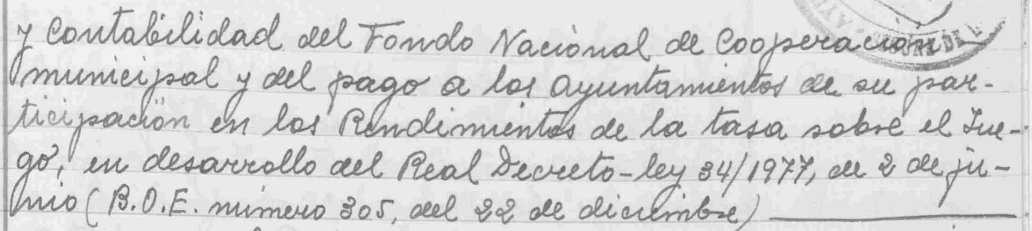 y Contabilidad del Fondo Nacional de Cooperación
municipal y del pago a los Ayuntamientos de su par-
ticipación en los Rendimientos de la tasa sobre el Jue-
go, en desarrollo del Real Decreto-ley 34/1977, de 2 de ju-
nio (B.O.E. número 305, del 22 de diciembre)